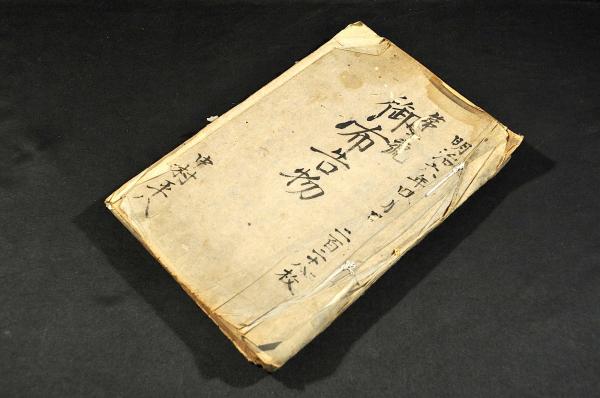 明治六年四月ヨ
第号
御布告物
二百二十八枚
中村平八